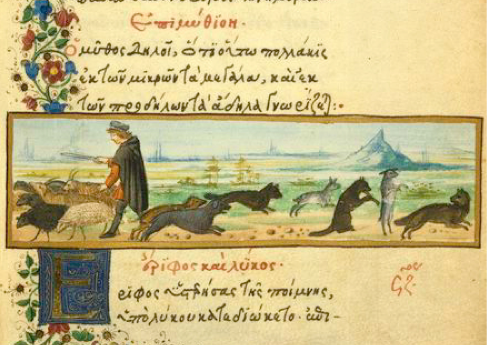 Ἐπιμύθιον.
Ὁ μῦθος δηλοῖ, ὅτι οὕτω πολλάκις
ἐκ τῶν μικρῶν τὰ μεγάλα, καὶ ἐκ
τῶν προδήλων τὰ ἄδηλα γνωρίζεται:
ἔριφος καὶ λύκος.
Ἔριφος ὑστερήσας τῆς ποίμνης,
ὑπὸ λύκου κατεδιώκετο. ἐπι-